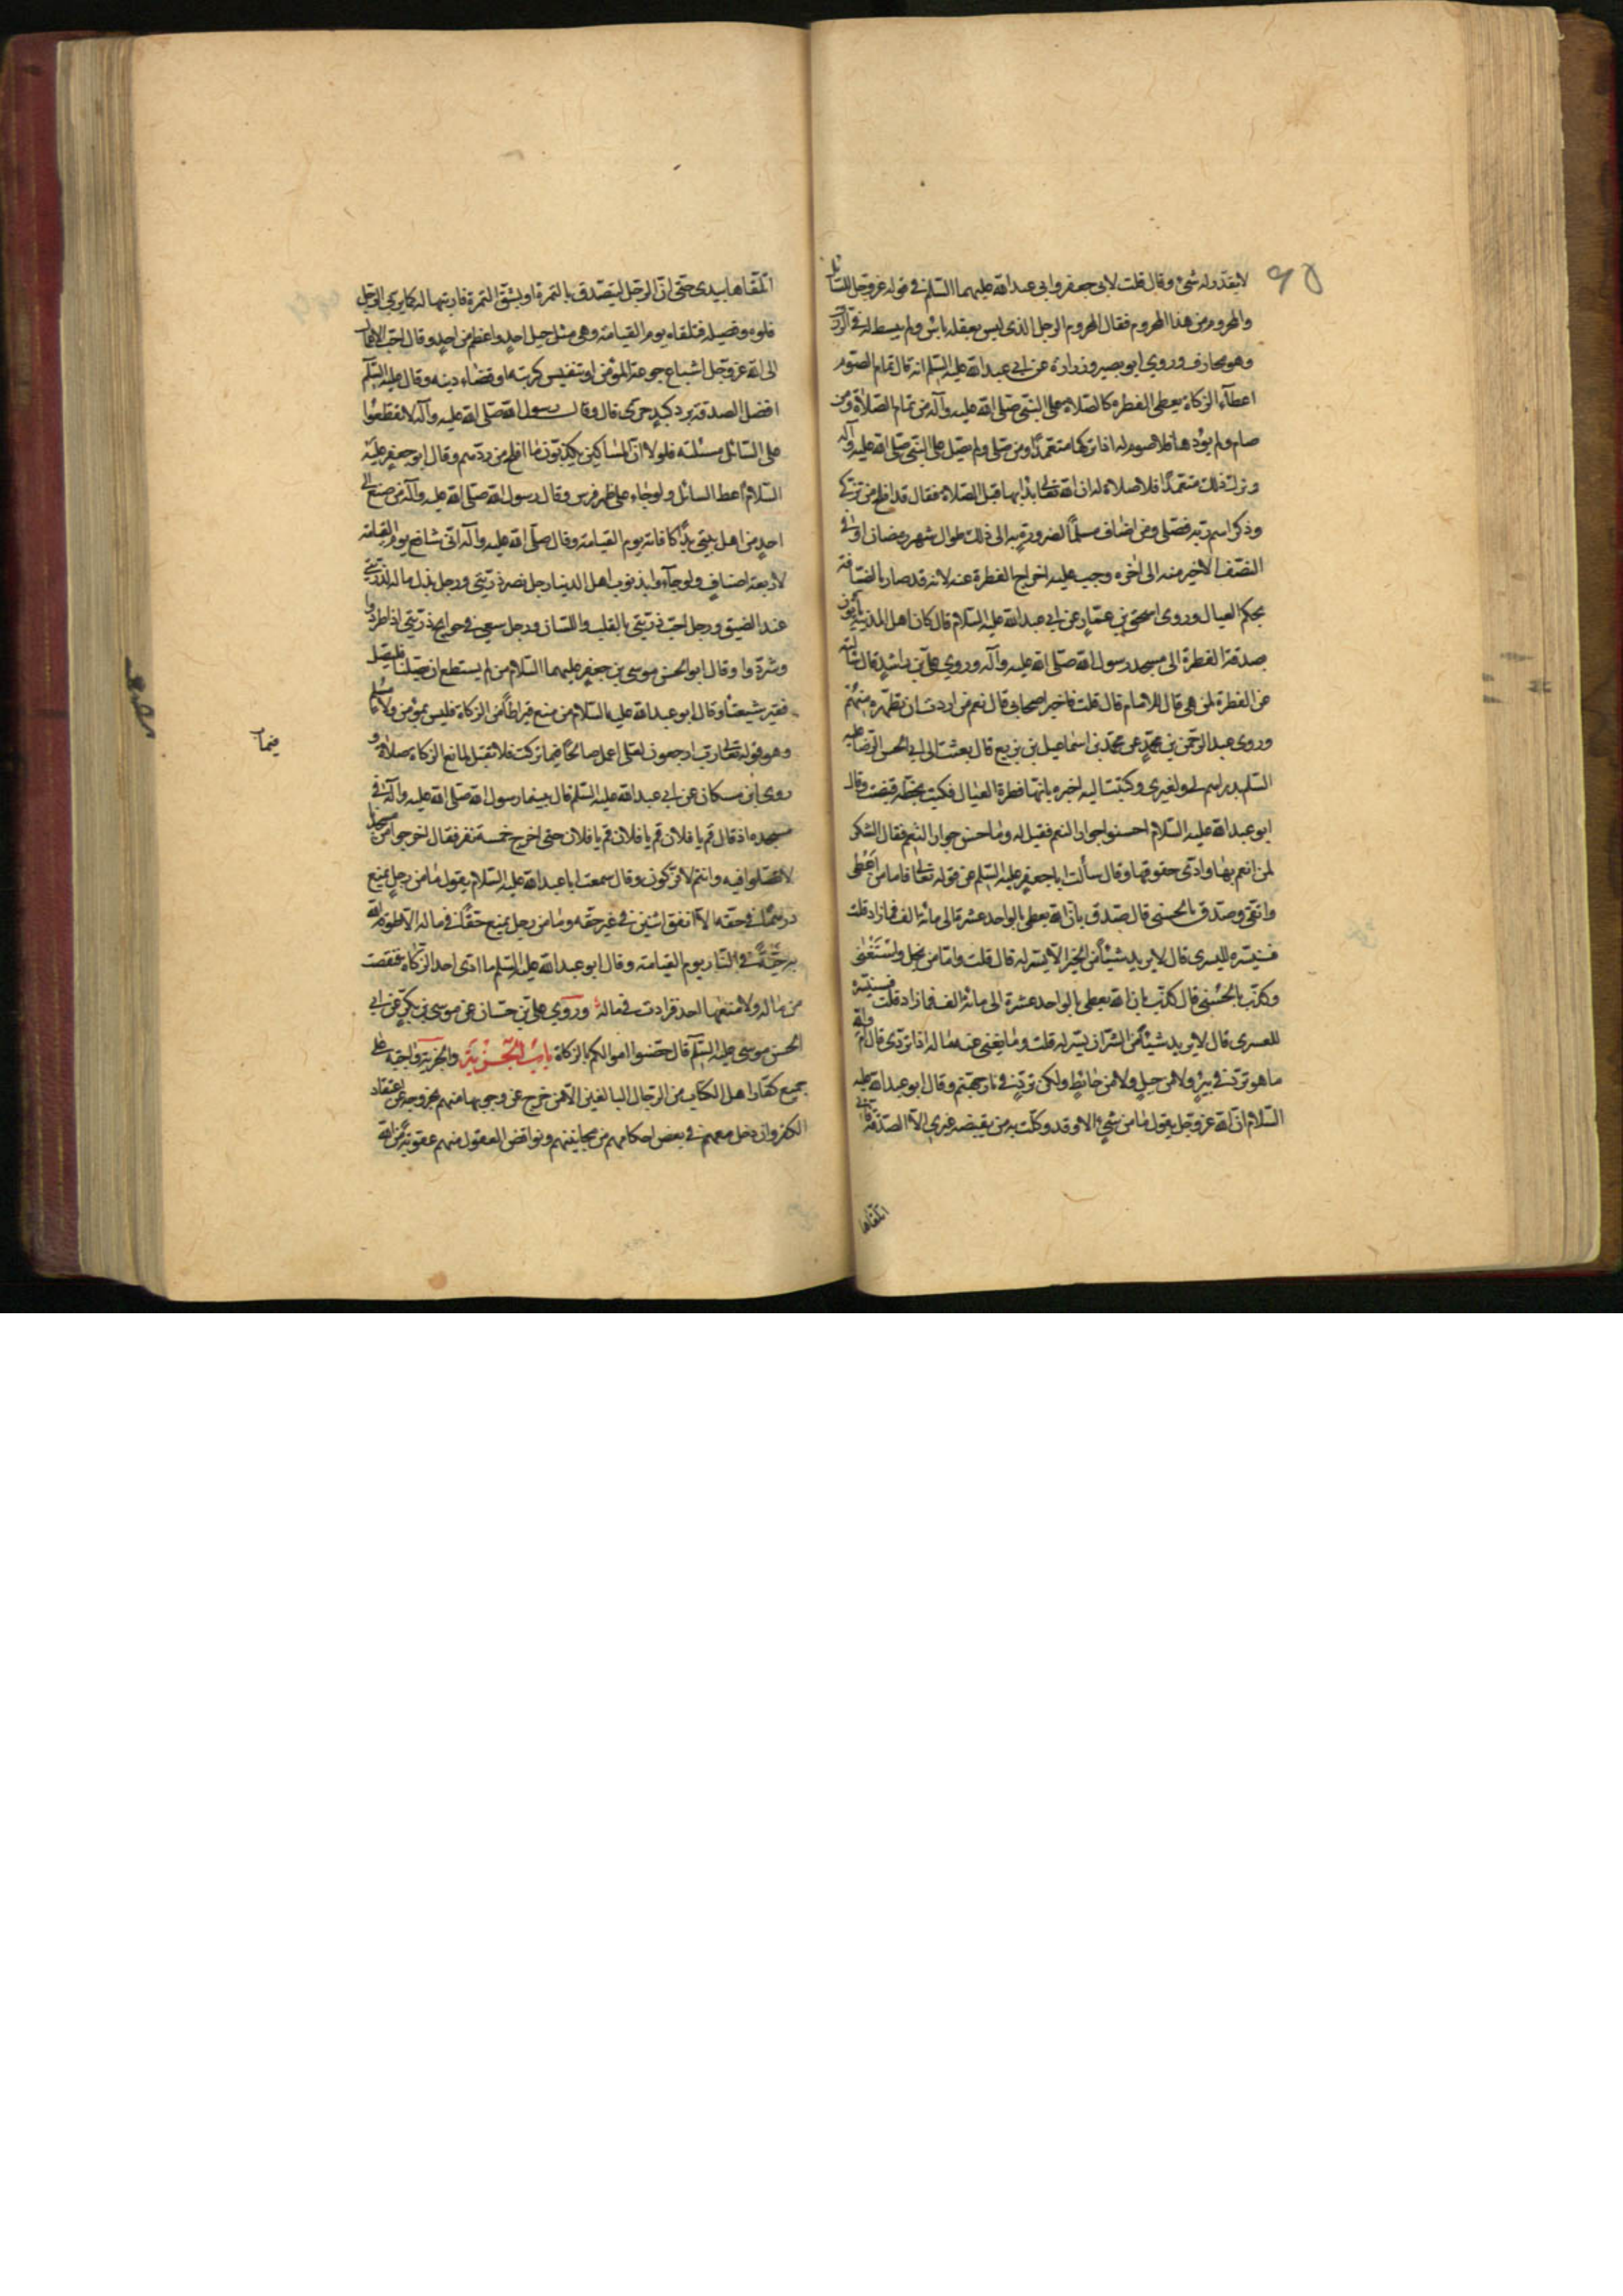 لا يقدر له شيء وقال قلت لابي جعفر وابي عبد الله عليهما السلم في قوله عز وجل للسائل
والمحروم من هذا المحروم فقال المحروم الرجل الذي ليس بعقله باس ولم يبسط له في الرزق
وهو محارف وروي ابو بصير وزرارة عن ابي عبد الله عليه السلم انه قال تمام الصوم
اعطاء الزكاة يعطي الفطره كالصلاة على النبي صلى الله عليه وآله من تمام الصلاة ومن
صام ولم يؤدها فلا صوم له اذا تركها متعمدا ومن صلى ولم يصل على النبي صلى الله عليه وآله
وترك ذلك متعمدا فلا صلاة له ان الله تعالى بدا بها قبل الصلاة فقال قد افلح من تزكى
وذكر اسم ربه فصلى ومن اضاف مسلما لضرورة به الى ذلك طول شهر رمضان او في
النصف الاخير منه الى اخره وجب عليه اخراج الفطرة عنه لانه قد صار بالضيافة
بحكم العيال وروى اسحق بن عمار عن ابي عبد الله عليه السلام قال كان اهل المدينة يأتون
بصدقة الفطرة الى مسجد رسول الله صلى الله عليه وآله وروي علي بن راشد قال سألته
عن الفطرة لمن هي قال للامام قال قلت فاخبر اصحابي قال نعم من اردت ان تطهره منهم
وروى عبد الرحمن بن محمد عن محمد بن اسماعيل بن بزيع قال بعثت الى ابي الحسن الرضا عليه
السلم بدراهم لي ولغيري وكتبت اليه اخبره بانها فطرة العيال فكتب بخطه قبضت وقال
ابو عبد الله عليه السلام احسنوا جوار النعم فقيل له وما حسن جوار النعم فقال الشكر
لمن انعم بها وادى حقوقها وقال سألت ابا جعفر عليه السلم عن قوله تعالى فاما من اعطى
واتقى وصدق بالحسنى قال صدق بان الله يعطي بالواحد عشرة الى مائة الف فما زاد قلت
فسنيسره لليسرى قال لا يريد شيئا من الخير الا يسر له قال قلت واما من بخل واستغنى
وكذب بالحسنى قال كذب بان الله يعطي بالواحد عشرة الى مائة الف فما زاد قلت فسنيسره
للعسرى قال لا يريد شيئا من الشر الا يسر له قلت وما يغني عنه ماله اذا تردى قال اما والله
ما هو تردى في بئر ولا من جبل ولا من حائط ولكن تردى في نار جهنم وقال ابو عبد الله عليه
السلام ان الله عز وجل يقول ما من شيء الا وقد وكلت به من يقبضه غيري الا الصدقة فاني
اتلقاها
اتلقاها بيدي حتى ان الرجل ليتصدق بالتمرة او بشق التمرة فاربيها له كما يربي الرجل
فلوه وفصيله فتلقاه يوم القيامة وهي مثل جبل احد واعظم من احد وقال احب الاعمال
الى الله عز وجل اشباع جوعة المؤمن او تنفيس كربته او قضاء دينه وقال عليه السلم
افضل الصدقة برد كبد حرى قال وقال رسول الله صلى الله عليه وآله لا تقطعوا
على السائل مسئلته فلولا ان المساكين يكذبون ما افلح من ردهم وقال ابو جعفر عليه
السلام اعط السائل ولو جاء على ظهر فرس وقال رسول الله صلى الله عليه وآله من صنع الى
احد من اهل بيتي يدا كافاته يوم القيامة وقال صلى الله عليه وآله اني شافع يوم القيامة
لاربعة اصناف ولو جاؤا بذنوب اهل الدنيا رجل نصر ذريتي ورجل بذل ماله لذريتي
عند الضيق ورجل احب ذريتي بالقلب واللسان ورجل سعى في حوايج ذريتي اذا طردوا
وشردوا وقال ابو الحسن موسى بن جعفر عليهما السلام من لم يستطع ان يصلنا فليصل
فقير شيعتنا وقال ابو عبد الله عليه السلام من منع قيراطا من الزكاة فليس بمؤمن ولا مسلم
وهو قوله تعالى رب ارجعون لعلي اعمل صالحا فيما تركت فلا تقبل لمانع الزكاة صلاة و
فيما
روى ابن مسكان عن ابي عبد الله عليه السلم قال بينما رسول الله صلى الله عليه وآله في
مسجده اذ قال قم يا فلان قم يا فلان قم يا فلان حتى اخرج خمسة نفر فقال اخرجوا من مسجدنا
لا تصلوا فيه وانتم لا تزكون وقال سمعت ابا عبد الله عليه السلام يقول ما من رجل يمنع
درهما في حقه الا انفق اثنين في غير حقه وما من رجل يمنع حقا في ماله الا طوقه الله
به حية في النار يوم القيامة وقال ابو عبد الله عليه السلم ما ادى احد الزكاة فنقصت
من ماله ولا منعها احد فزادت في ماله وروي علي بن حسان عن موسى بن بكر عن ابي
الحسن موسى عليه السلم قال حصنوا اموالكم بالزكاة باب الجزية والجزية واجبة على
جميع كفار اهل الكتاب من الرجال البالغين الا من خرج عن وجوبها منهم بخروجه عن اعتقاد
الكفر وان دخل معهم في بعض احكامهم من مجانينهم ونواقص العقول منهم عقوبة من الله